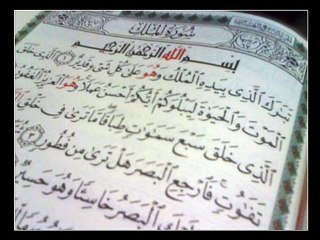 سُورَةُ المُلْكِ
بِسْمِ اللَّهِ الرَّحْمَٰنِ الرَّحِيمِ
تَبَارَكَ الَّذِي بِيَدِهِ الْمُلْكُ وَهُوَ عَلَىٰ كُلِّ شَيْءٍ قَدِيرٌ ۝١ الَّذِي خَلَقَ
الْمَوْتَ وَالْحَيَوٰةَ لِيَبْلُوَكُمْ أَيُّكُمْ أَحْسَنُ عَمَلًا وَهُوَ الْعَزِيزُ الْغَفُورُ
الَّذِي خَلَقَ سَبْعَ سَمَوَاتٍ طِبَاقًا مَا تَرَىٰ فِي خَلْقِ
تَفَاوُتٍ فَارْجِعِ الْبَصَرَ هَلْ تَرَىٰ مِنْ فُطُورٍ ۝٣
الْبَصَرُ خَاسِئًا وَهُوَ حَسِيرٌ